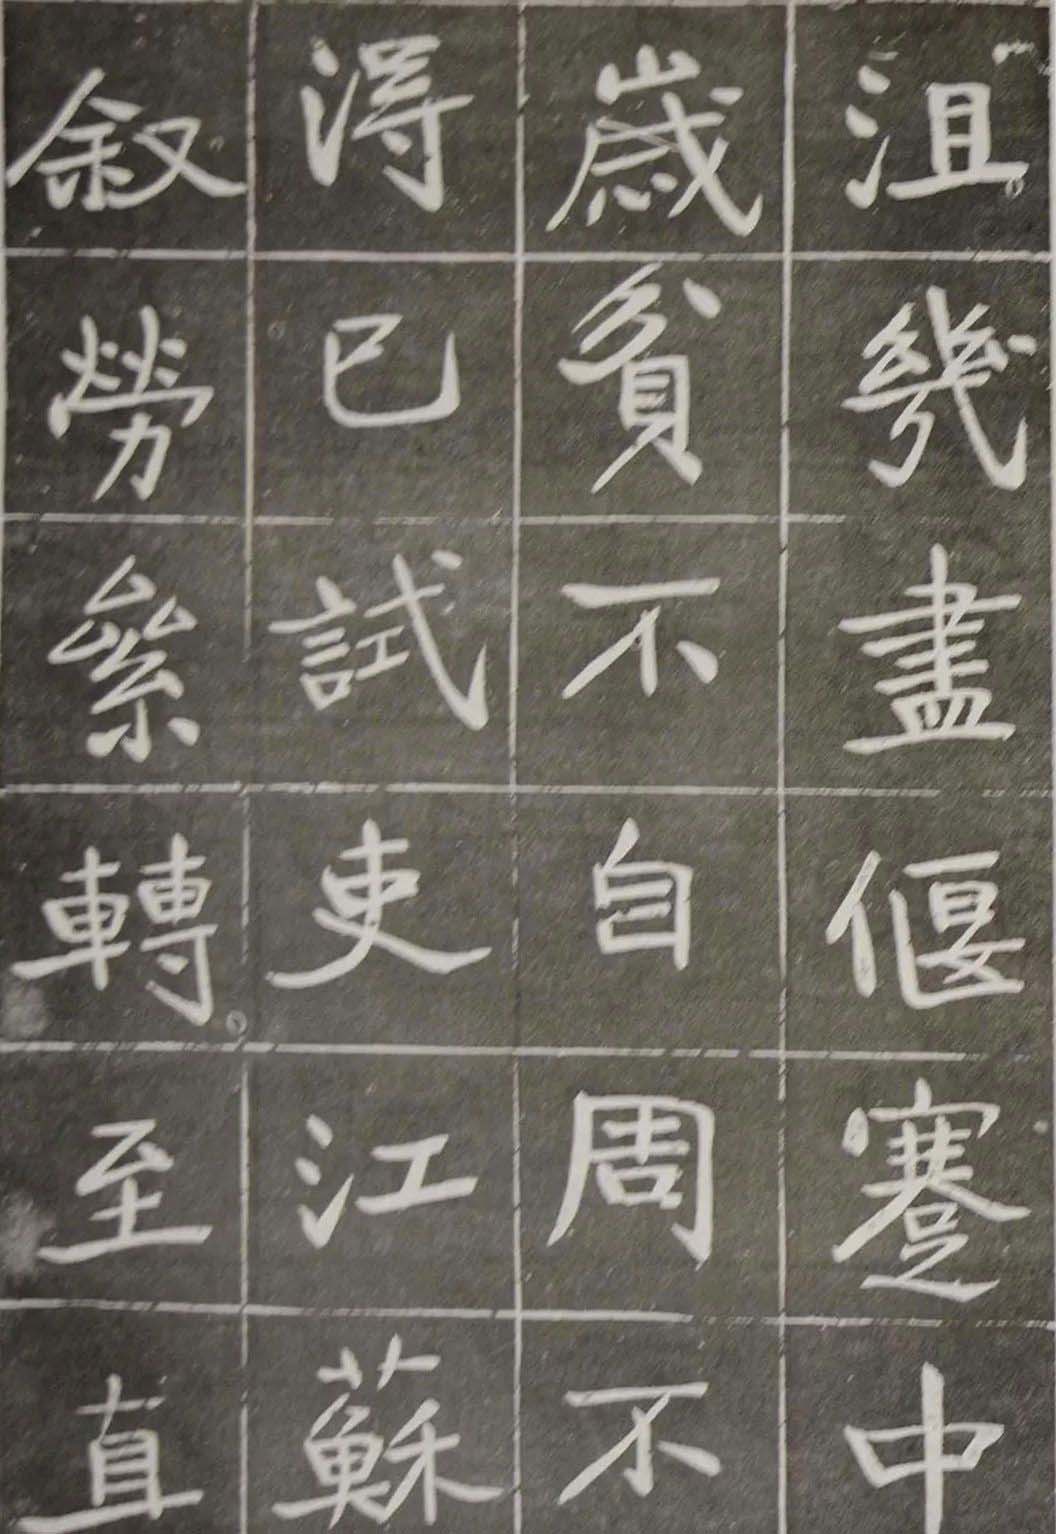 沮幾盡偃蹇中
歲貧不自周不
得已試吏江蘇
叙勞絫轉至直